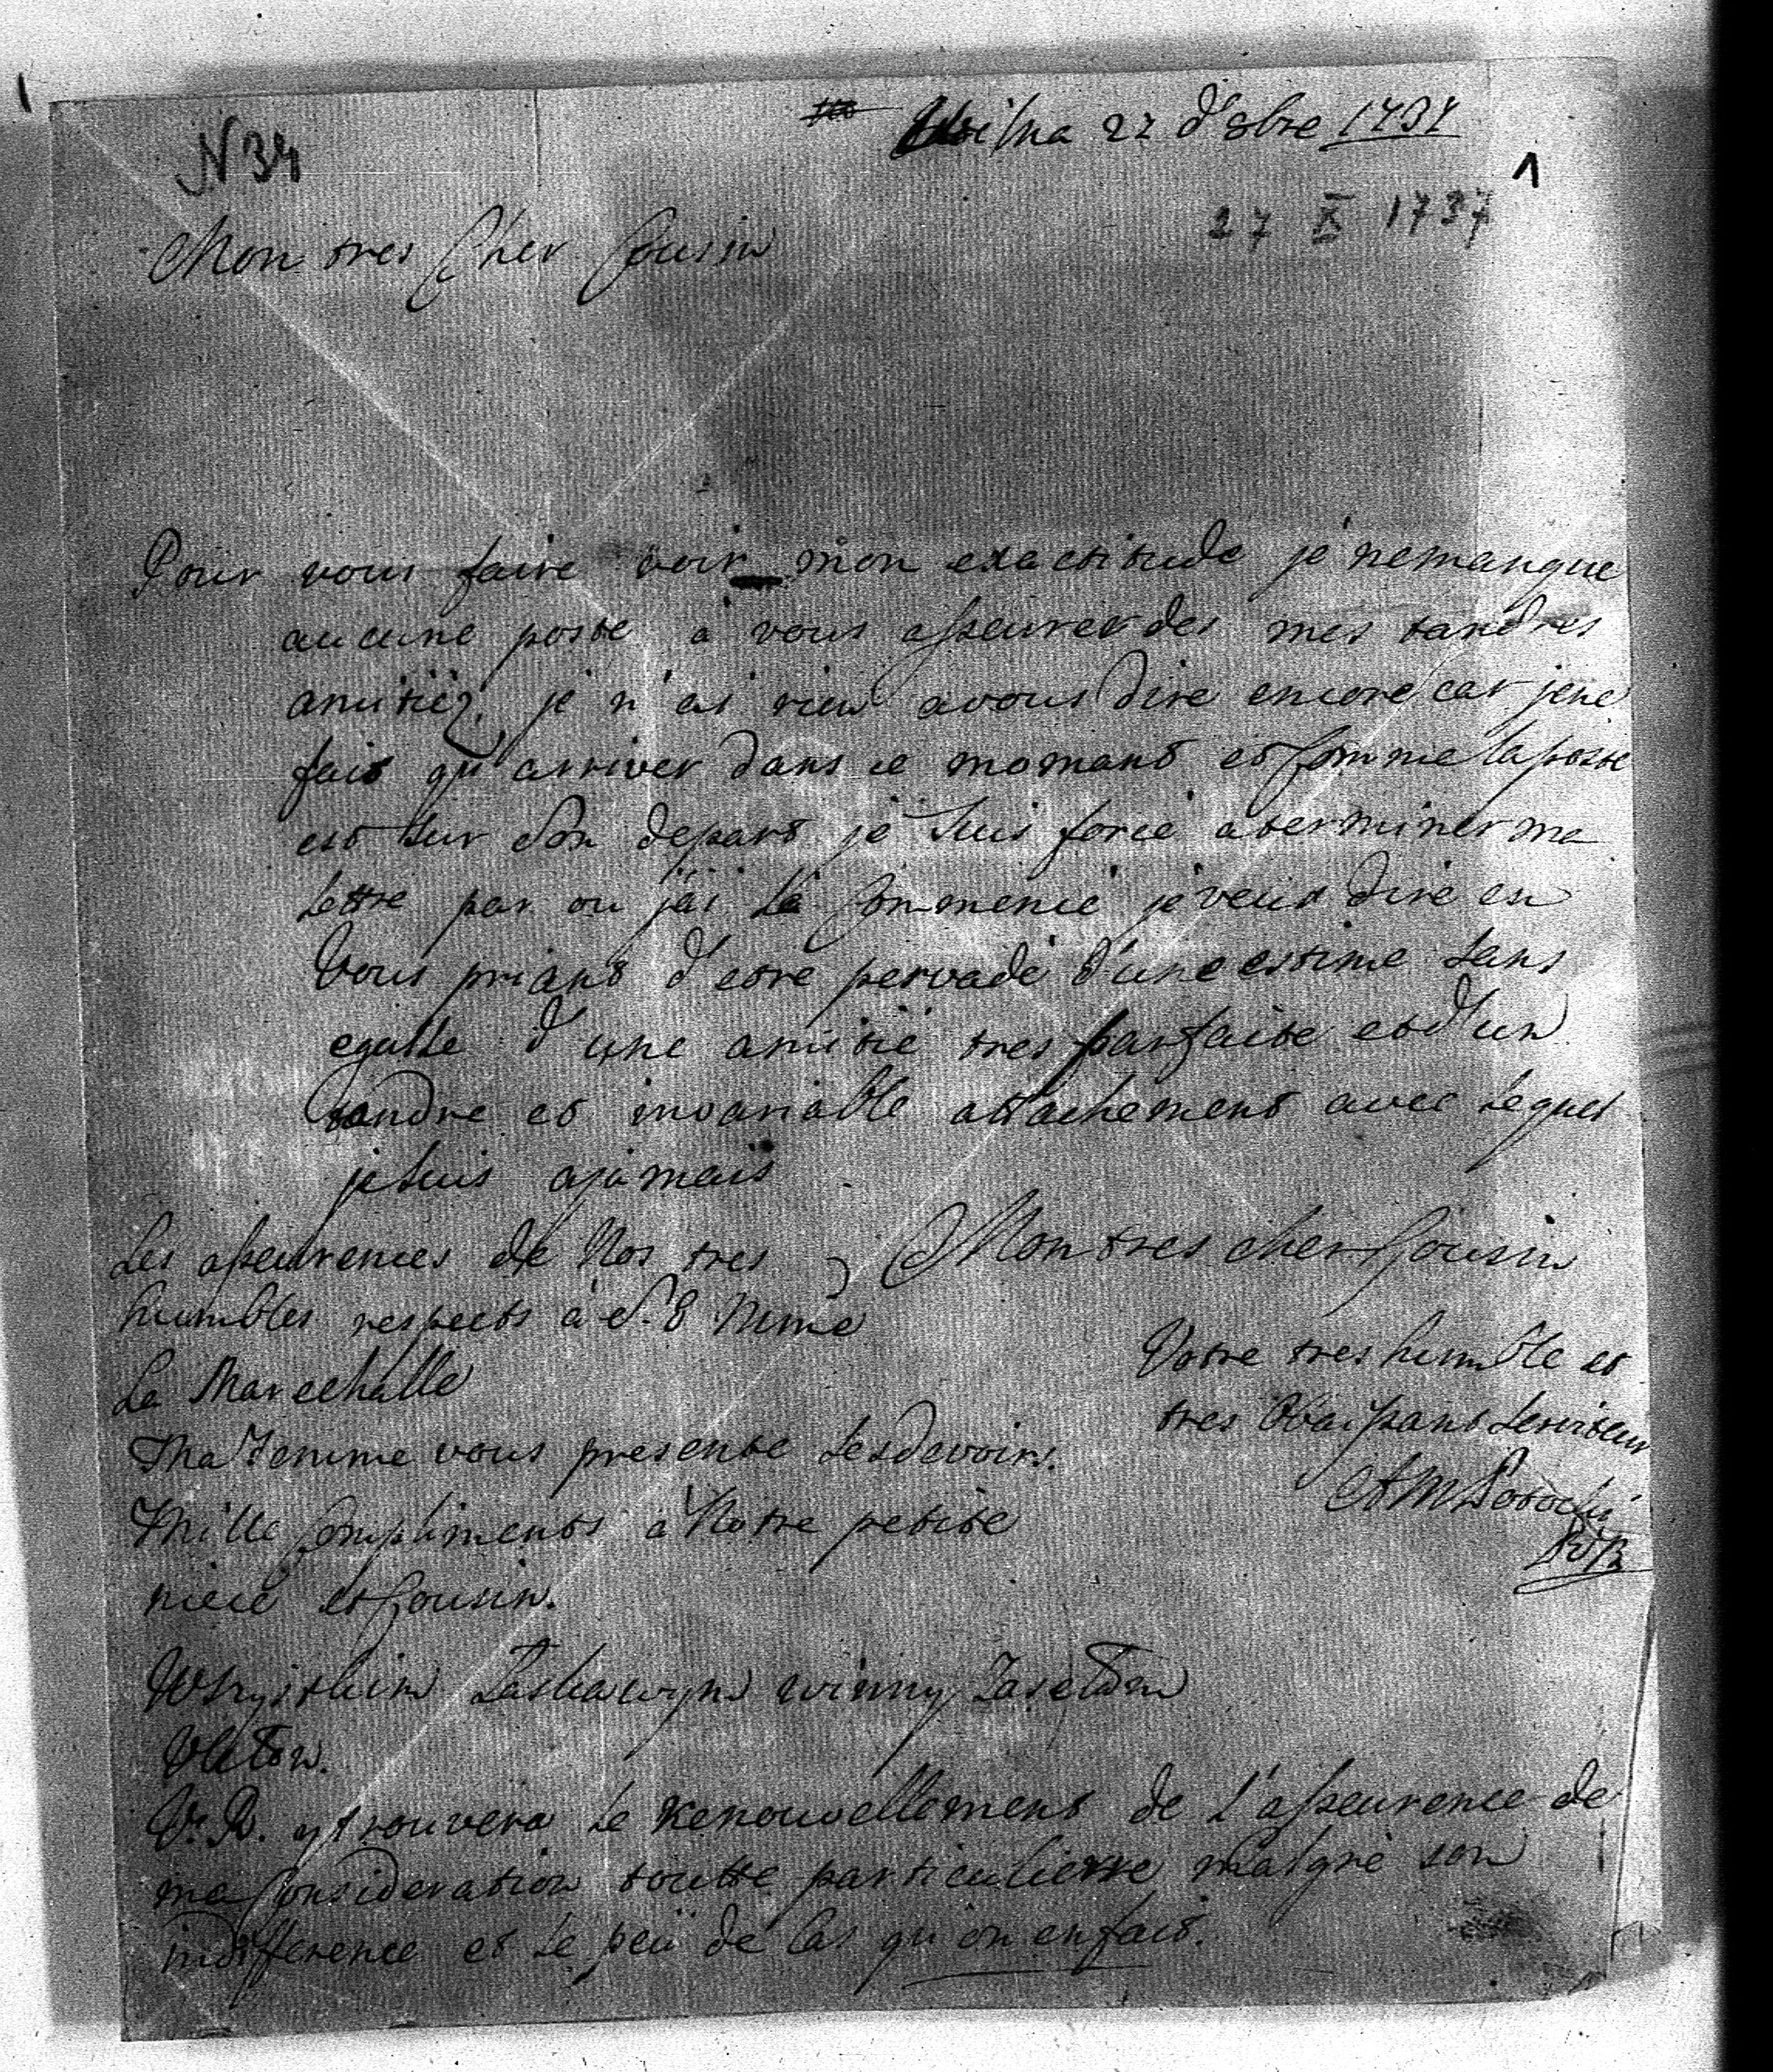 Wilna 27 d'8bre 1737
N 34
27 X 1737
1
Mon tres Cher Cousin
Pour vous faire voir mon exactitude je nemanque
aucune poste à vous asseurer des mes tandres
amitiéz, je n'ai rien avous dire encore car jene
fait qu'arriver dans ce momant et Comme la poste
est sur son depart je suis forcé aterminer ma
Lettre par ou j'ai Lé Commencé je veux dire en
Vous priant d'estre persuadé d'une estime sans
egalle d'une amitié tres parfaite et d'un
tandre et invariable attachement avec Lequel
je suis ajamais
Mon tres cher Cousin
Votre tres humble et
tres Obaissant Serviteur
AMPotocki
Les asseurences de Nos tres
humbles respects à S. E Mme
La Marechalle
Ma Femme vous presente sesdevoirs.
Mille Compliments à Notre petite
niece et Cousin.
Wszystkim Laskawym winny
V. R. ytrouvera Le Renouvellement de L'asseurence de
ma Consideration toutte particulierre malgré son
indifference et Le peü de Cas qu'on enfait.